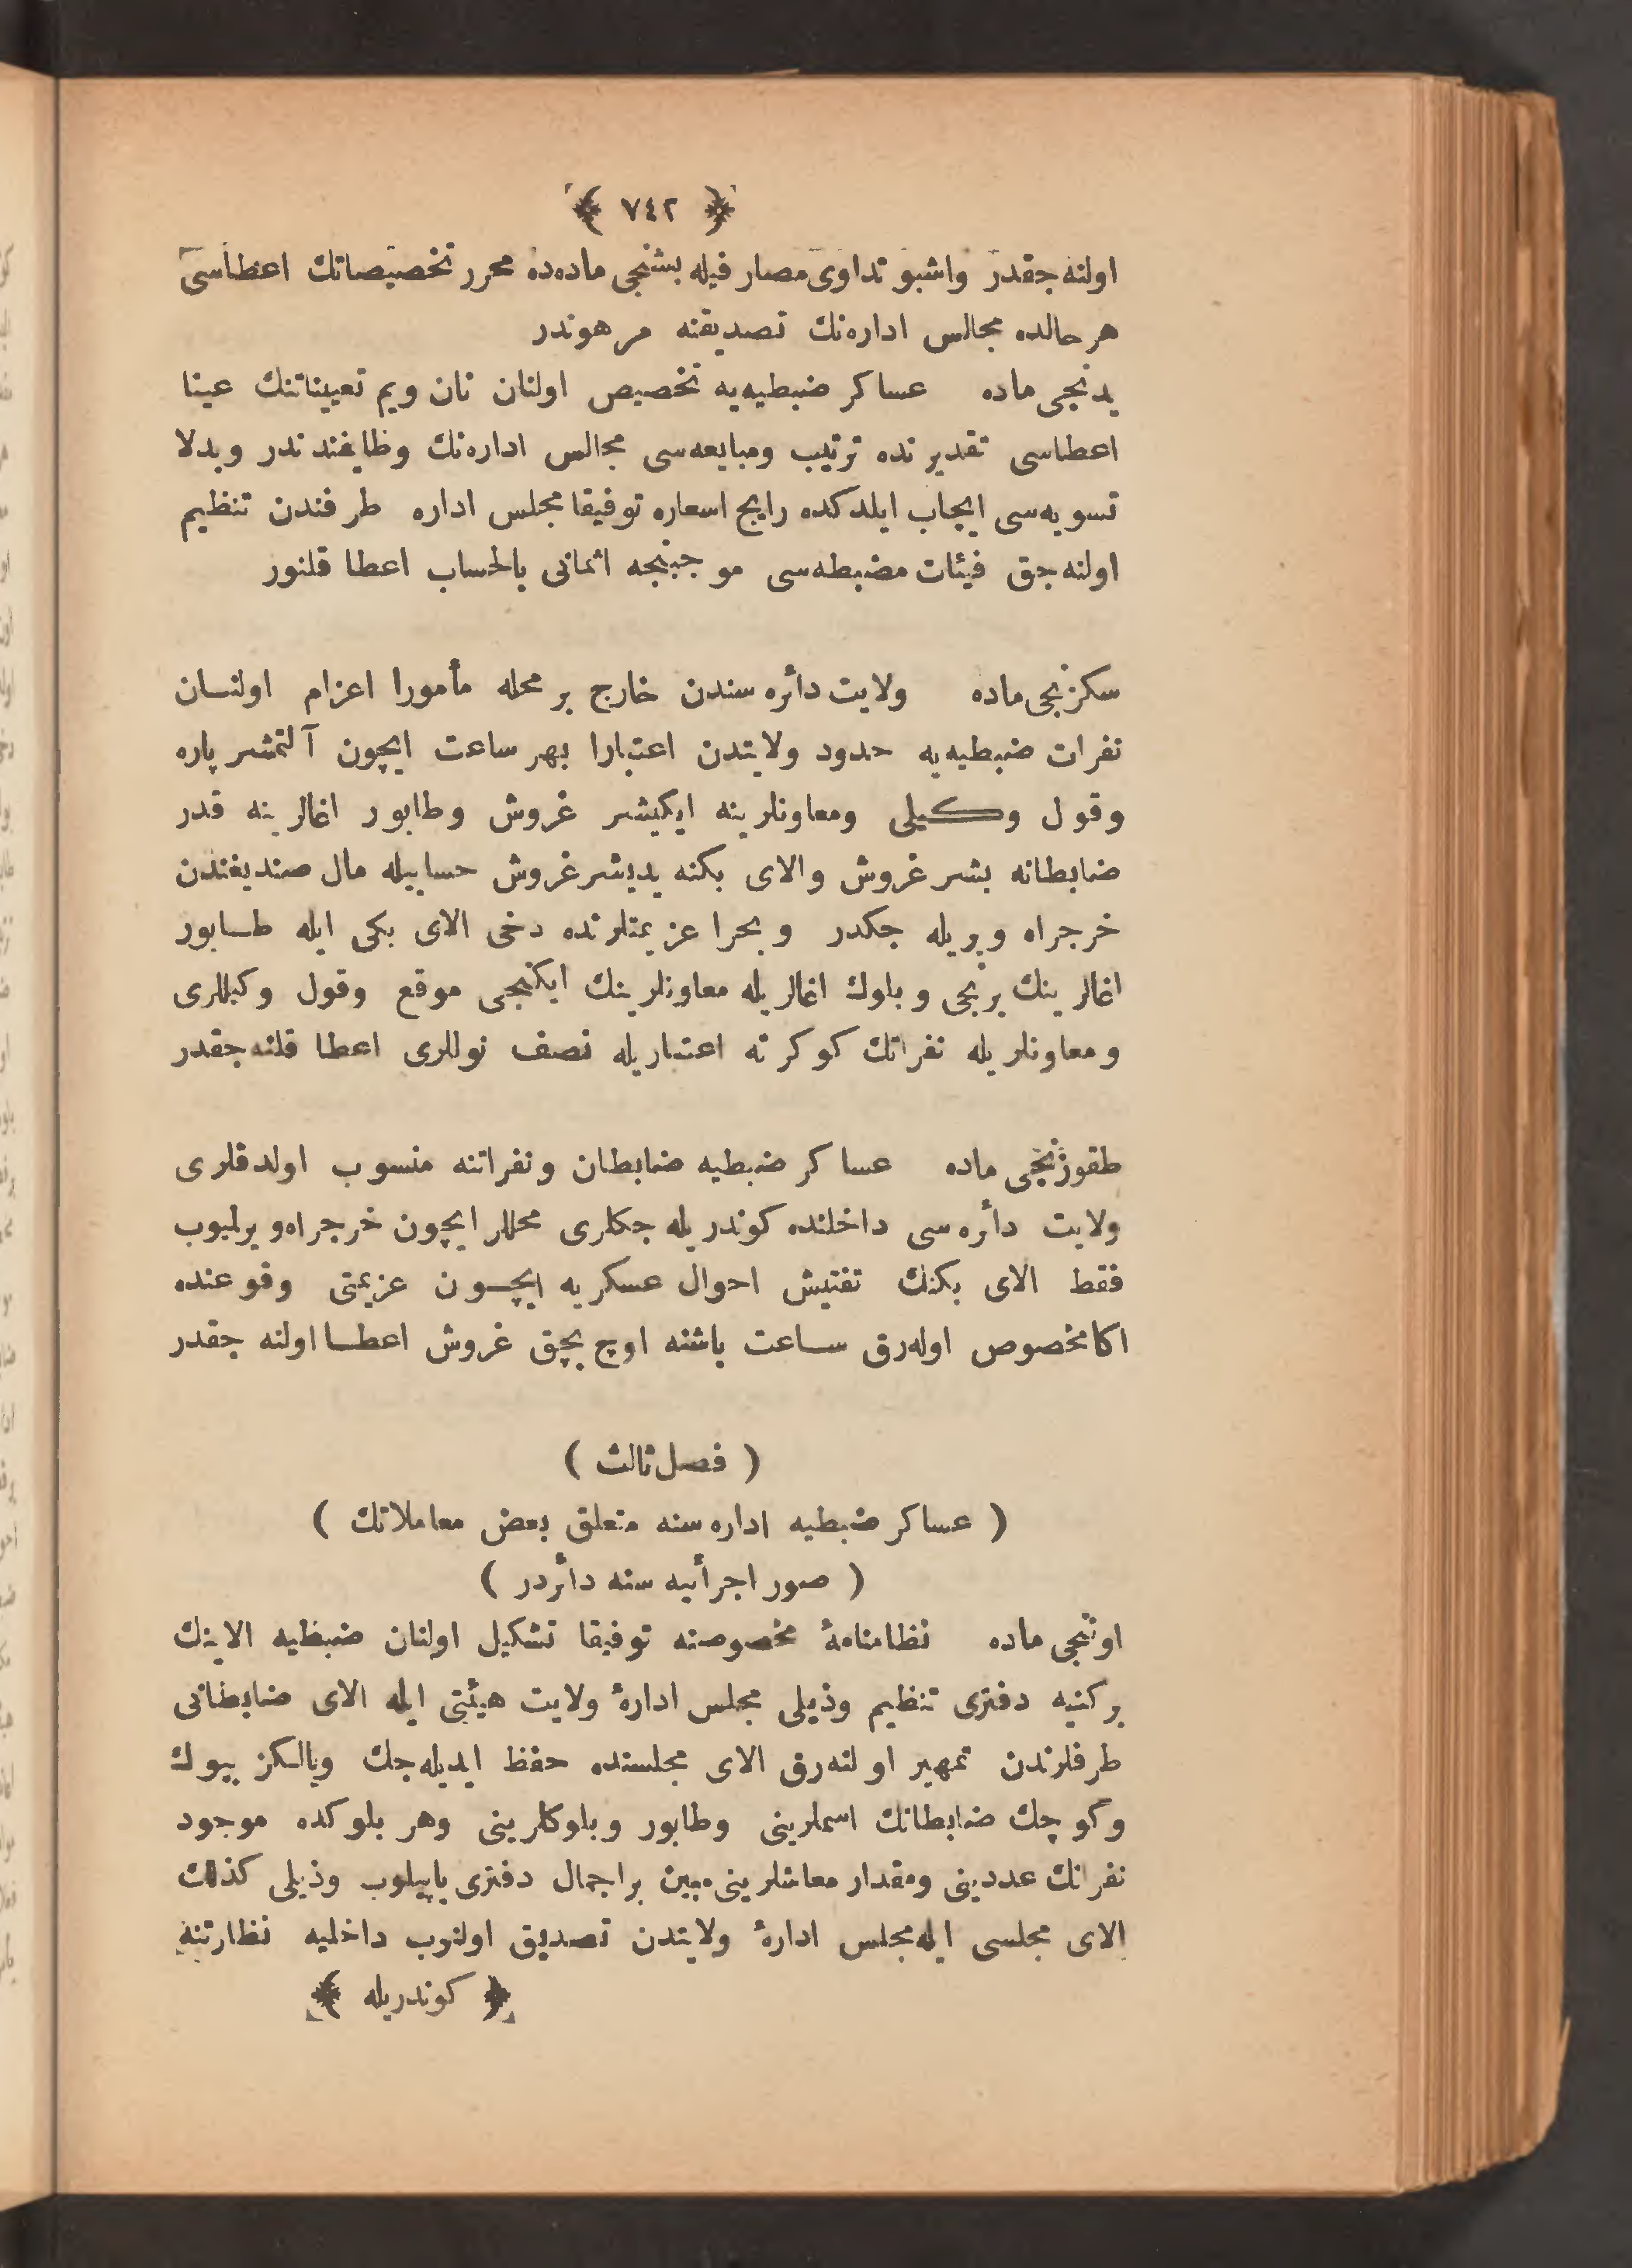 ﴿ ٧٤٢ ﴾
اولنه جقدر واشبو تداوی مصارفیله بشنجی ماده‌ده محرر تخصیصاتك اعطاسی
هر حالده مجالس اداره‌نك تصدیقنه مرهوندر
یدنجی ماده عساکر ضبطیه‌یه تخصیص اولنان نان ویم تعییناتنك عینا
اعطاسی تقدیرنده ترتیب ومبایعه‌سی مجالس اداره‌نك وظایفندندر وبدلا
تسویه‌سی ایجاب ایلدکده رایج اسعاره توفیقا مجلس اداره طرفندن تنظیم
اولنه‌جق فیئات مضبطه‌سی موجبنجه اثمانی بالحساب اعطا قلنور
سکزنجی ماده ولایت دائره سندن خارج بر محله مأمورا اعزام اولنان
نفرات ضبطیه‌یه حدود ولایتدن اعتبارا بهر ساعت ایچون آلتمشر پاره
وقول وکیلی ومعاونلرینه ایکیشر غروش وطابور اغالرینه قدر
ضابطانه بشر غروش والای بکنه یدیشر غروش حسابیله مال صندیغندن
خرجراه ویریله جکدر وبحرا عزیمتلرنده دخی الای بکی ایله طابور
اغالرینك برنجی وبلوك اغالریله معاونلرینك ایکنجی موقع وقول وکیللری
ومعاونلریله نفراتك کوکرته اعتباریله نصف نوللری اعطا قلنه‌جقدر
طقوزنجی ماده عساکر ضبطیه ضابطان ونفراتنه منسوب اولدقلری
ولایت دائره سی داخلنده کوندریله جکلری محللر ایچون خرجراه ویرلیوب
فقط الای بکنك تفتیش احوال عسکریه ایچون عزیمتی وقوعنده
اکا مخصوص اوله‌رق ساعت باشنه اوچ بچق غروش اعطا اولنه جقدر
( فصل ثالث )
( عساکر ضبطیه اداره سنه متعلق بعض معاملاتك )
( صور اجرأیه سنه دأئردر )
اوننجی ماده نظامنامهٔ مخصوصنه توفیقا تشکیل اولنان ضبطیه الاینك
بر کنیه دفتری تنظیم وذیلی مجلس ادارهٔ ولایت هیئتی ایله الای ضابطانی
طرفلرندن تمهیر اولنه‌رق الای مجلسنده حفظ ایدیله‌جك ویالکز بیوك
وکوچك ضابطانك اسملرینی وطابور وبلوکلرینی وهر بلوکده موجود
نفرانك عددینی ومقدار معاشلرینی مبین بر اجمال دفتری یاپیلوب وذیلی کذلك
الای مجلسی ایله مجلس ادارهٔ ولایتدن تصدیق اولنوب داخلیه نظارتنه
﴿ کوندریله ﴾